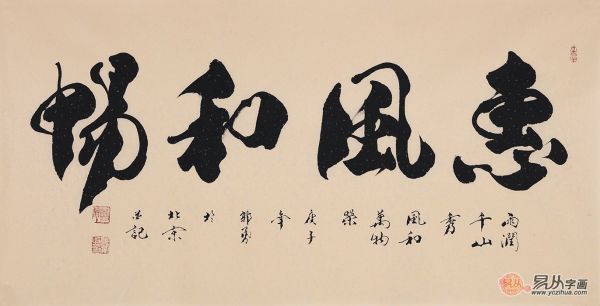 惠風和暢
雨潤
千山
秀
風和
萬物
榮
庚子
年
於
北京
並記
易从字画
www.yczihua.com